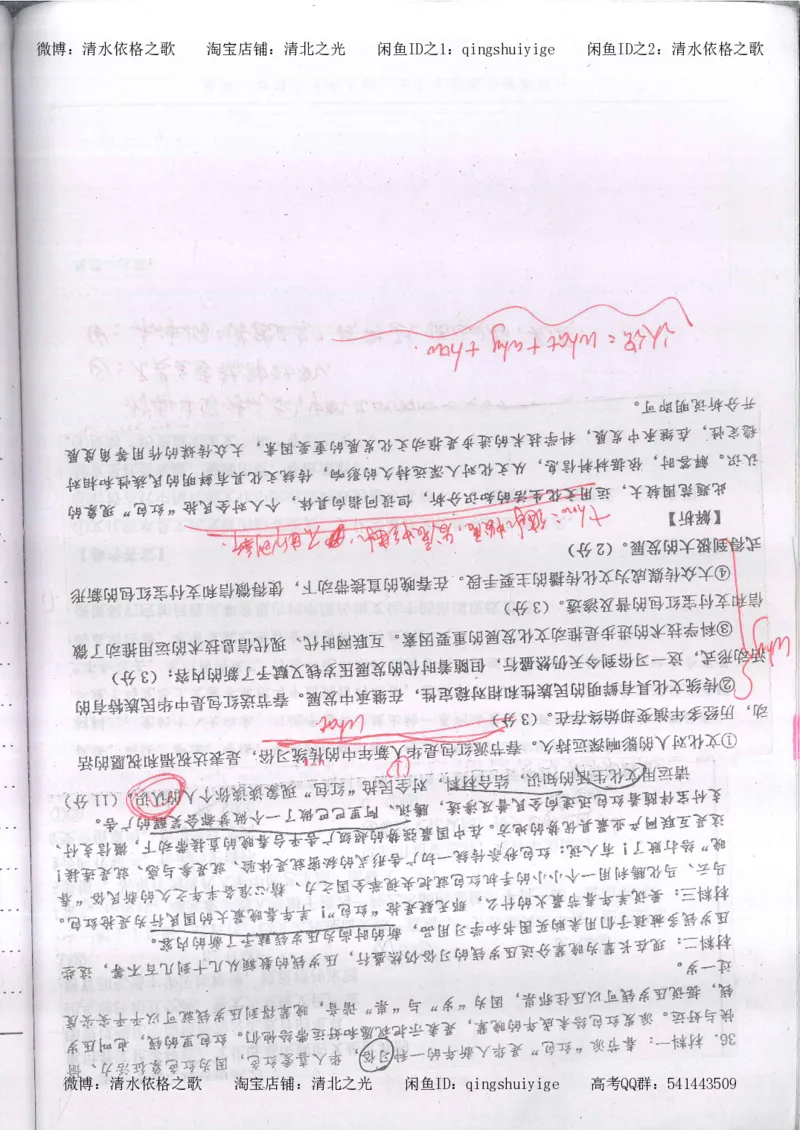 微博：清水依格之歌 淘宝店铺：清北之光 闲鱼ID之1：qingshuiyige 闲鱼ID之2：清水依格之歌
36. 材料一：春节派“红包”是华人新年的一种习俗，华人喜爱红色，因为红色象征活力、愉
快与好运。派发红包给未成年的晚辈，是表示把祝愿和好运带给他们。红包里的钱，也叫压岁
钱，据说压岁钱可以压住邪祟，因为“岁”与“祟”谐音，晚辈得到压岁钱就可以平平安安度
过一岁。
材料二：现在长辈为晚辈分送压岁钱的习俗仍然盛行，压岁钱的数额从几十到几百不等，这些
压岁钱多被孩子们用来购买图书和学习用品，新的时尚为压岁钱赋予了新的内容。
材料三：要说羊年春节最火的什么，那无疑是抢“红包”！羊年春晚最大的国民行为是抢红包。
马云、马化腾利用一个小小的手机红包就把央视举全国之力、精心准备半年之久的新民俗“春
晚”给打败了！有人说：红包秒杀传统一切广告形式的秘密就是体验、就是参与感、就是连接！
这是互联网产业最具优势的地方。在中国最强势的超级广告平台春晚的直接带动下，微信支付、
支付宝伴随着红包迅速向全民普及渗透，腾讯、阿里巴巴做了一个做梦都会笑醒的广告。
请运用文化生活的知识，结合材料，对全民抢“红包”现象谈谈你个人的认识。（11 分）
①文化对人的影响深远持久。春节派红包是华人新年中的传统习俗，是表达祝福和祝愿的活
动，历经多年演变却始终存在。（3 分）
what
②传统文化具有鲜明的民族性和相对稳定性，在继承中发展。春节送红包是中华民族特有的
活动形式，这一习俗到今天仍然盛行，但随着时代的发展压岁钱又赋予了新的内容；（3 分）
why
③科学技术的进步是推动文化发展的重要因素。互联网时代、现代信息技术的运用推动了微
信和支付宝红包的普及渗透。（3 分）
④大众传媒成为文化传播的主要手段。在春晚的直接带动下，使得微信和支付宝红包的新形
式得到极大的发展。（2 分）
【解析】
此题范围较大，运用文化生活的知识分析，但设问指向具体，个人对全民抢“红包”现象的
认识。解答时，依据材料信息，从文化对人深远持久的影响，传统文化具有鲜明的民族性和相对
稳定性，在继承中发展，科学技术的进步是推动文化发展的重要因素，大众传媒的作用等角度展
开分析说明即可。
认识=what+why+how.
微博：清水依格之歌 淘宝店铺：清北之光 闲鱼ID：qingshuiyige 高考QQ群：541443509